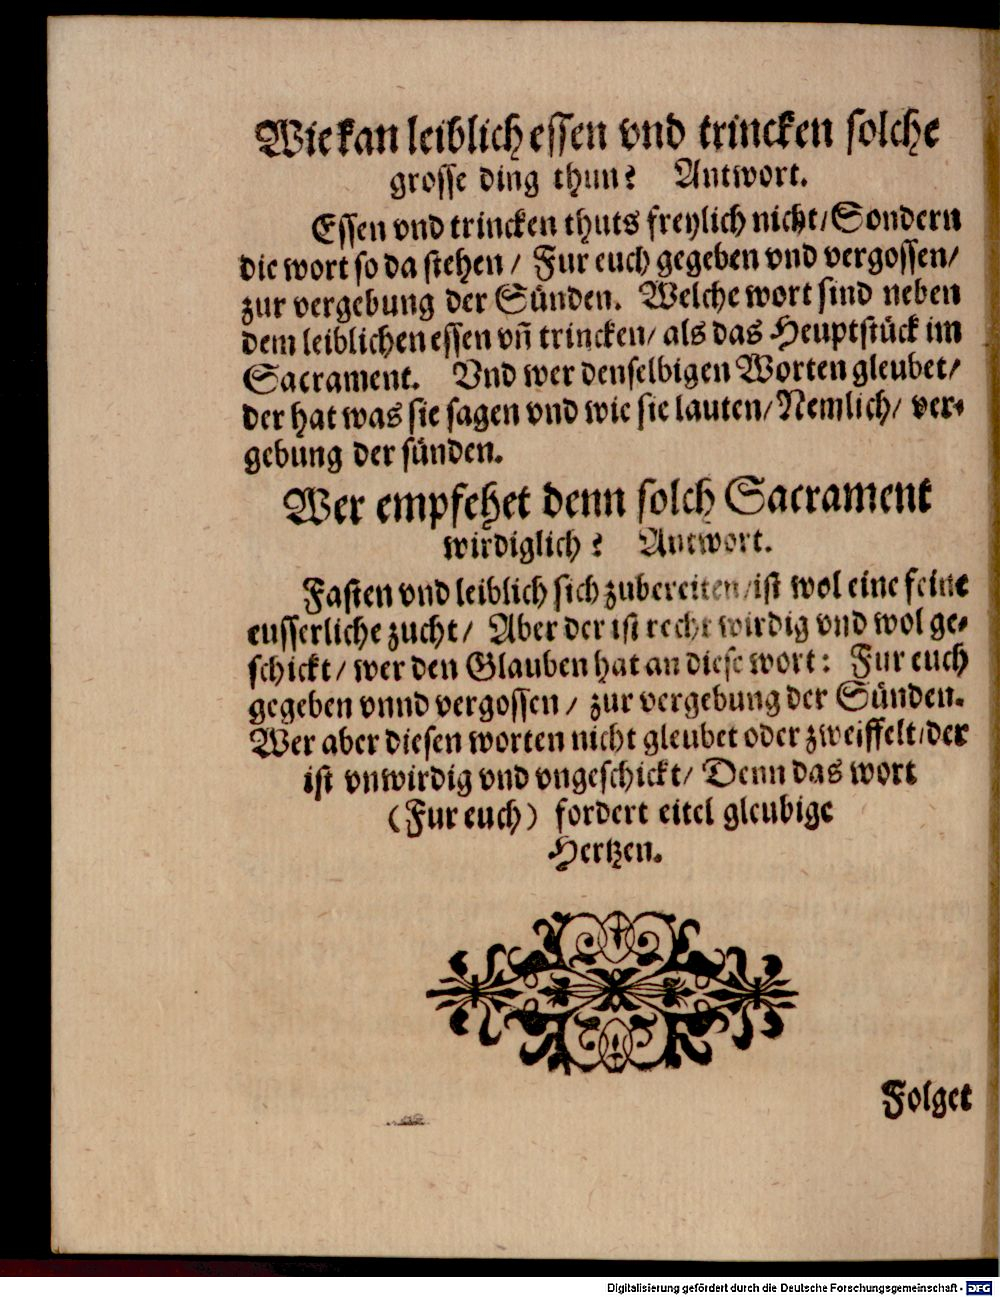 Wie kan leiblich essen vnd trincken solche
grosse ding thun? Antwort.
Essen vnd trincken thuts freylich nicht/ Sondern
die wort so da stehen / Fur euch gegeben vnd vergossen/
zur vergebung der Sünden. Welche wort sind neben
dem leiblichen essen vñ trincken/ als das Heuptstück im
Sacrament. Vnd wer denselbigen Worten gleubet/
der hat was sie sagen vnd wie sie lauten/ Nemlich/ ver-
gebung der sünden.
Wer empfehet denn solch Sacrament
wirdiglich? Antwort.
Fasten vnd leiblich sich zubereiten/ ist wol eine feine
eusserliche zucht/ Aber der ist recht wirdig vnd wol ge-
schickt/ wer den Glauben hat an diese wort: Fur euch
gegeben vnnd vergossen / zur vergebung der Sünden.
Wer aber diesen worten nicht gleubet oder zweiffelt/ der
ist vnwirdig vnd vngeschickt/ Denn das wort
(Fur euch) fordert eitel gleubige
Hertzen.
Folget
Digitalisierung gefördert durch die Deutsche Forschungsgemeinschaft - DFG